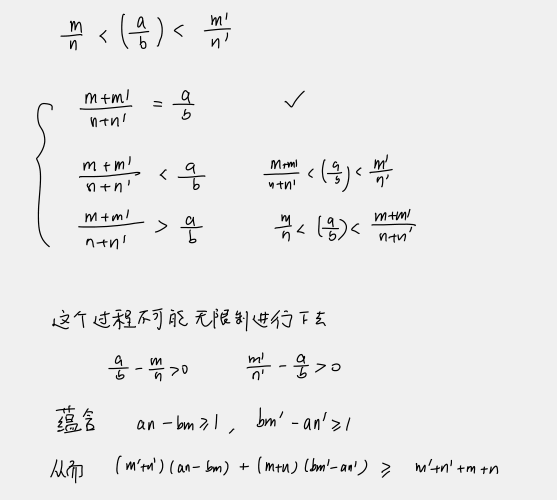 m/n < (a/b) < m'/n'
{ (m+m')/(n+n') = a/b ✓
(m+m')/(n+n') < a/b (m+m')/(n+n') < (a/b) < m'/n'
(m+m')/(n+n') > a/b m/n < (a/b) < (m+m')/(n+n')
这个过程不可能无限制进行下去
a/b - m/n > 0 m'/n' - a/b > 0
蕴含 an - bm ≥ 1 , bm' - an' ≥ 1
从而 (m'+n')(an - bm) + (m+n)(bm' - an') ≥ m'+n'+m+n